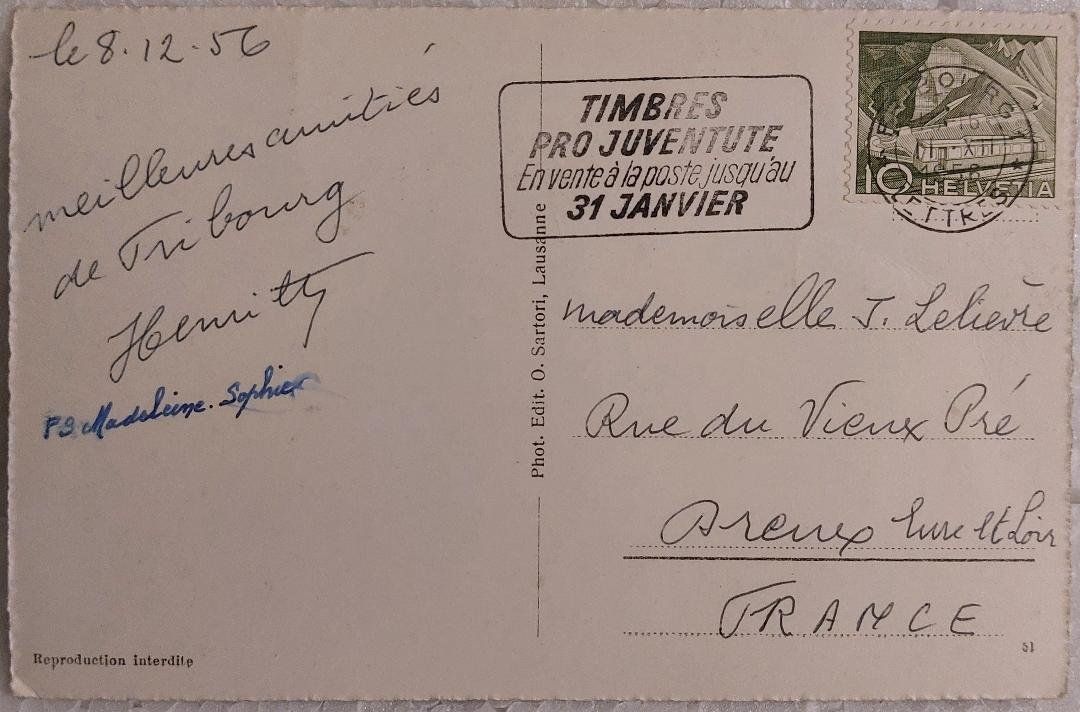 le 8.12.56
meilleures amitiés
de Fribourg
Henritty
PS Madeleine. Sophie
TIMBRES
PRO JUVENTUTE
En vente à la poste jusqu'au
31 JANVIER
10 HELVETIA
Phot. Edit. O. Sartori, Lausanne
Mademoiselle J. Lelièvre
Rue du Vieux Pré
Dreux Eure et Loir
FRANCE
Reproduction interdite
51